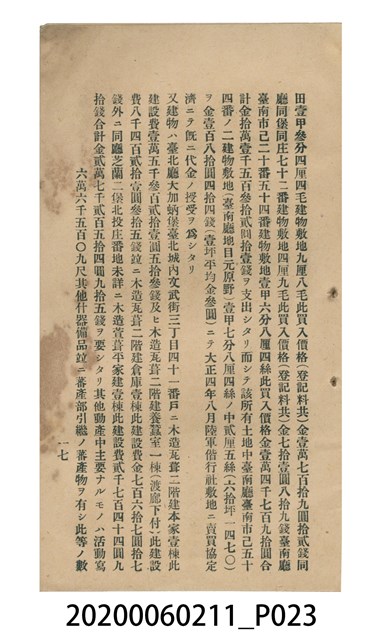 田壹甲參分四厘四毛建物敷地九厘八毛此買入價格(登記料共)金壹萬七百拾九圓拾貳錢同
廳同堡同庄七十二番建物敷地四厘九毛此買入價格(登記料共)金七拾壹圓八拾九錢臺南廳
臺南市己二十番五十四番建物敷地壹甲六分八厘四絲此買入價格金壹萬四千七百九拾圓合
計金拾萬壹千五百參拾貳圓拾壹錢ヲ支出シタリ而シテ該所有土地中臺南廳臺南市己五十
四番ノ二建物敷地(臺南廳地目元原野)壹甲七分八厘四絲ノ中貳厘五絲(六拾坪一四七〇)
ヲ金壹百八拾圓四拾四錢(壹坪平均金參圓)ニテ大正四年八月陸軍偕行社敷地ニ賣買協定
濟ニテ旣ニ代金ノ授受ヲ爲シタリ
又建物ハ臺北廳大加蚋堡臺北城內文武街三丁目四十一番戶ニ木造瓦葺二階建本家壹棟此
建設費壹萬五千參百貳拾壹圓五拾參錢及ヒ木造瓦葺二階建養蠶室一棟(渡廊下付)此建設
費八千四百貳拾壹圓參拾五錢竝ニ木造瓦葺二階建倉庫壹棟此建設費金七百六拾七圓拾七
錢外ニ同廳芝蘭二堡北投庄番地未詳ニ木造萱葺平家建壹棟此建設費貳千七百四十四圓九
拾錢合計金貳萬七千貳百五拾四圓九拾五錢ヲ要シタリ其他動產中主要ナルモノハ活動寫
六萬六千五百〇九尺其他什器備品竝ニ蕃產部引繼ノ蕃產物ヲ有シ此等ノ數
一七
20200060211_P023